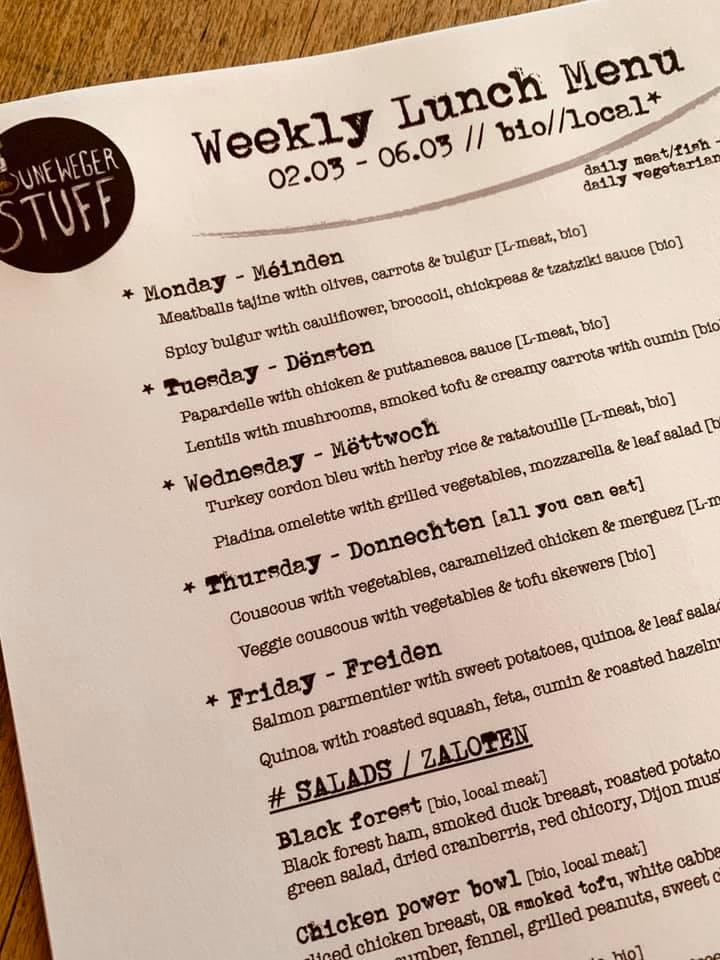 SUNEWEGER
STUFF
Weekly Lunch Menu
02.03 - 06.03 // bio//local*
daily meat/fish -
daily vegetarian
* Monday - Méinden
Meatballs tajine with olives, carrots & bulgur [L-meat, bio]
Spicy bulgur with cauliflower, broccoli, chickpeas & tzatziki sauce [bio]
* Tuesday - Dënsten
Papardelle with chicken & puttanesca sauce [L-meat, bio]
Lentils with mushrooms, smoked tofu & creamy carrots with cumin [bio
* Wednesday - Mëttwoch
Turkey cordon bleu with herby rice & ratatouille [L-meat, bio]
Piadina omelette with grilled vegetables, mozzarella & leaf salad [b
* Thursday - Donnechten [all you can eat]
Couscous with vegetables, caramelized chicken & merguez [L-m
Veggie couscous with vegetables & tofu skewers [bio]
* Friday - Freiden
Salmon parmentier with sweet potatoes, quinoa & leaf salad
Quinoa with roasted squash, feta, cumin & roasted hazeln
# SALADS / ZALOTEN
Black forest [bio, local meat]
Black forest ham, smoked duck breast, roasted potato
green salad, dried cranberris, red chicory, Dijon must
Chicken power bowl [bio, local meat]
sliced chicken breast, OR smoked tofu, white cabba
cumber, fennel, grilled peanuts, sweet c
bio]